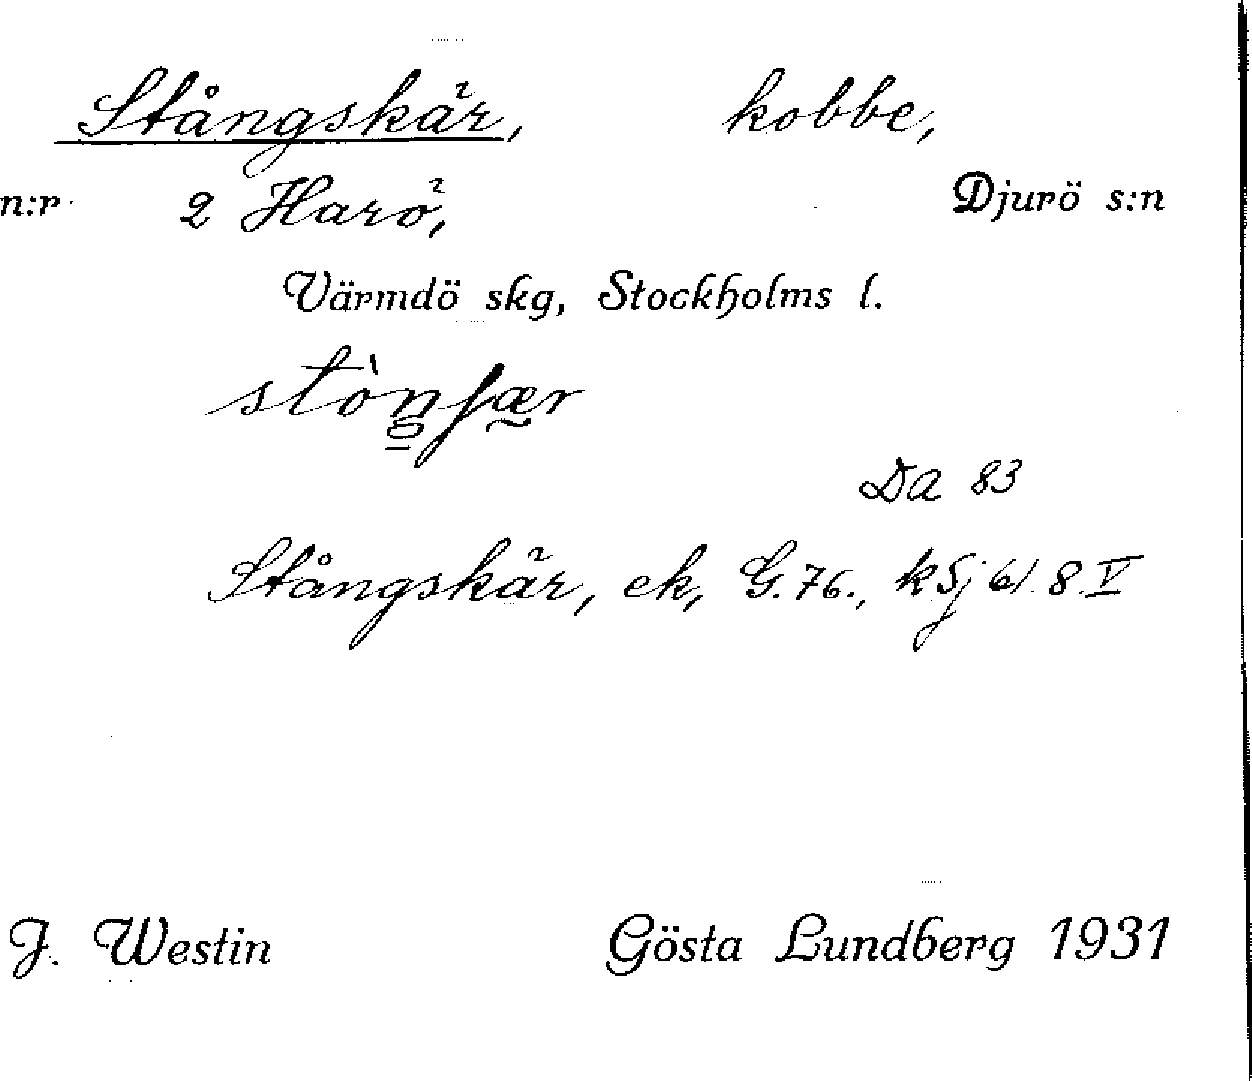 Stångskär, kobbe,
n:r 2 Harö, Djurö s:n
Värmdö skg, Stockholms l.
Da 83
Stångskär, ek, G.76., kSj 61.8.V
J. Westin Gösta Lundberg 1931